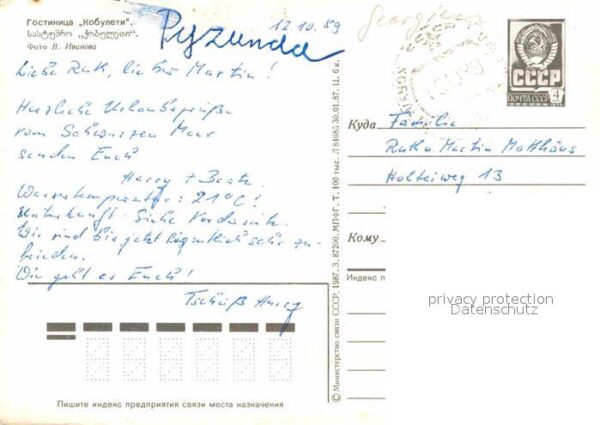 Гостиница „Кобулети".
სასტუმრო „ქობულეთი".
Фото В. Иванова
Pyzunda
12.10.89
Georgien
Liebe Ruth, lieber Martin!
Herzliche Urlaubsgrüße
vom Schwarzen Meer
senden Euch
Harry + Beate.
Wassertemperatur: 21°C!
Unterkunft: Siehe Vorderseite.
Wir sind bis jetzt eigentlich sehr zu-
frieden.
Wie geht es Euch!
Tschüß Harry
СССР
ПОЧТА СССР
4
Куда
Familie
Ruth u Martin Matthäus
Holteiweg 13
Кому
Индекс п
privacy protection
Datenschutz
© Министерство связи СССР, 1987. З. 87200. МПФГ. Т. 100 тыс. Л 84085 30.01.87. Ц. 6 к.
Пишите индекс предприятия связи места назначения